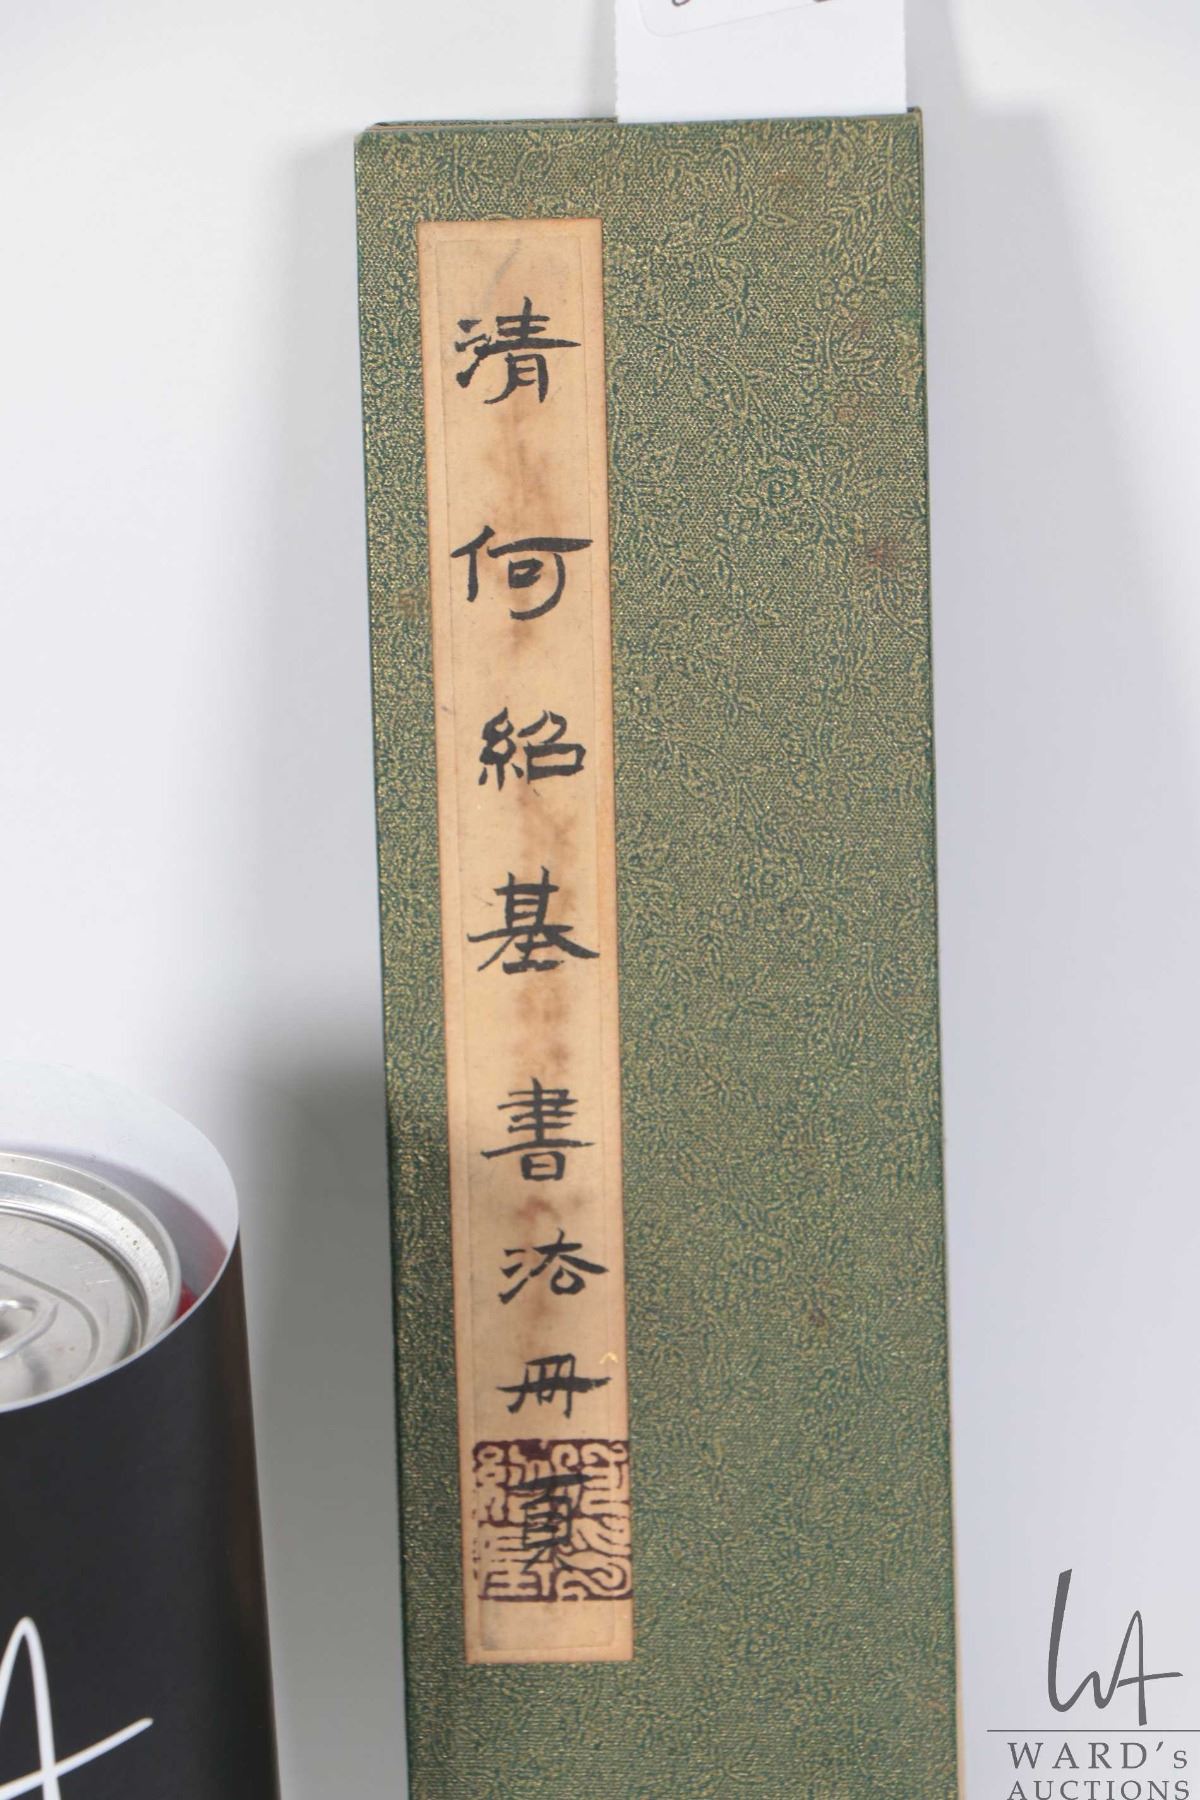 清何紹基書法冊頁
WARD's
AUCTIONS